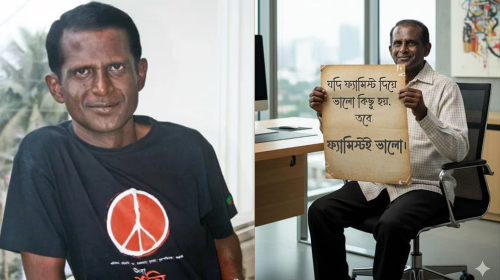 যদি ফ্যাসিস্ট দিয়ে
ভালো কিছু হয়,
তবে
ফ্যাসিস্টই ভালো।